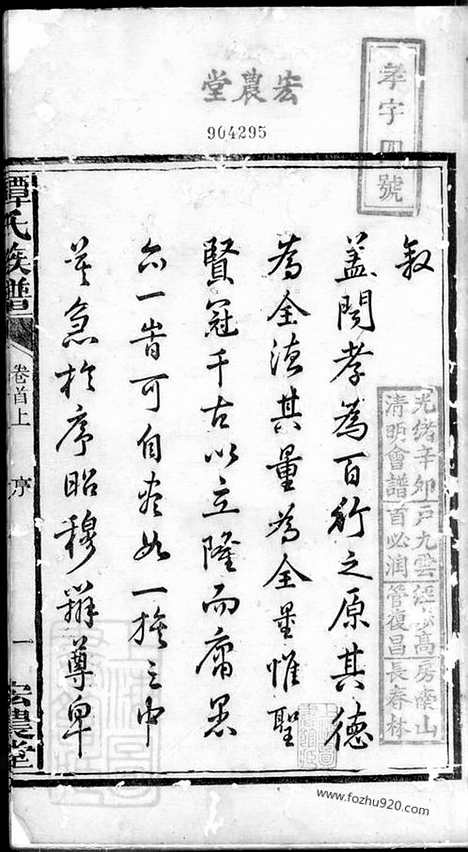 宏農堂
904295
孝字四號
敘
蓋聞孝為百行之原其德
為全德其量為全量惟聖
賢冠千古以立隆而庸愚
亦一皆可自盡如一族之中
莫急於序昭穆辨尊卑
光緒辛卯戶九雲
高房
山
清明會譜首必潤管復昌長春林
譚氏族譜
卷首上
序
一
宏農堂
www.fozhu920.com